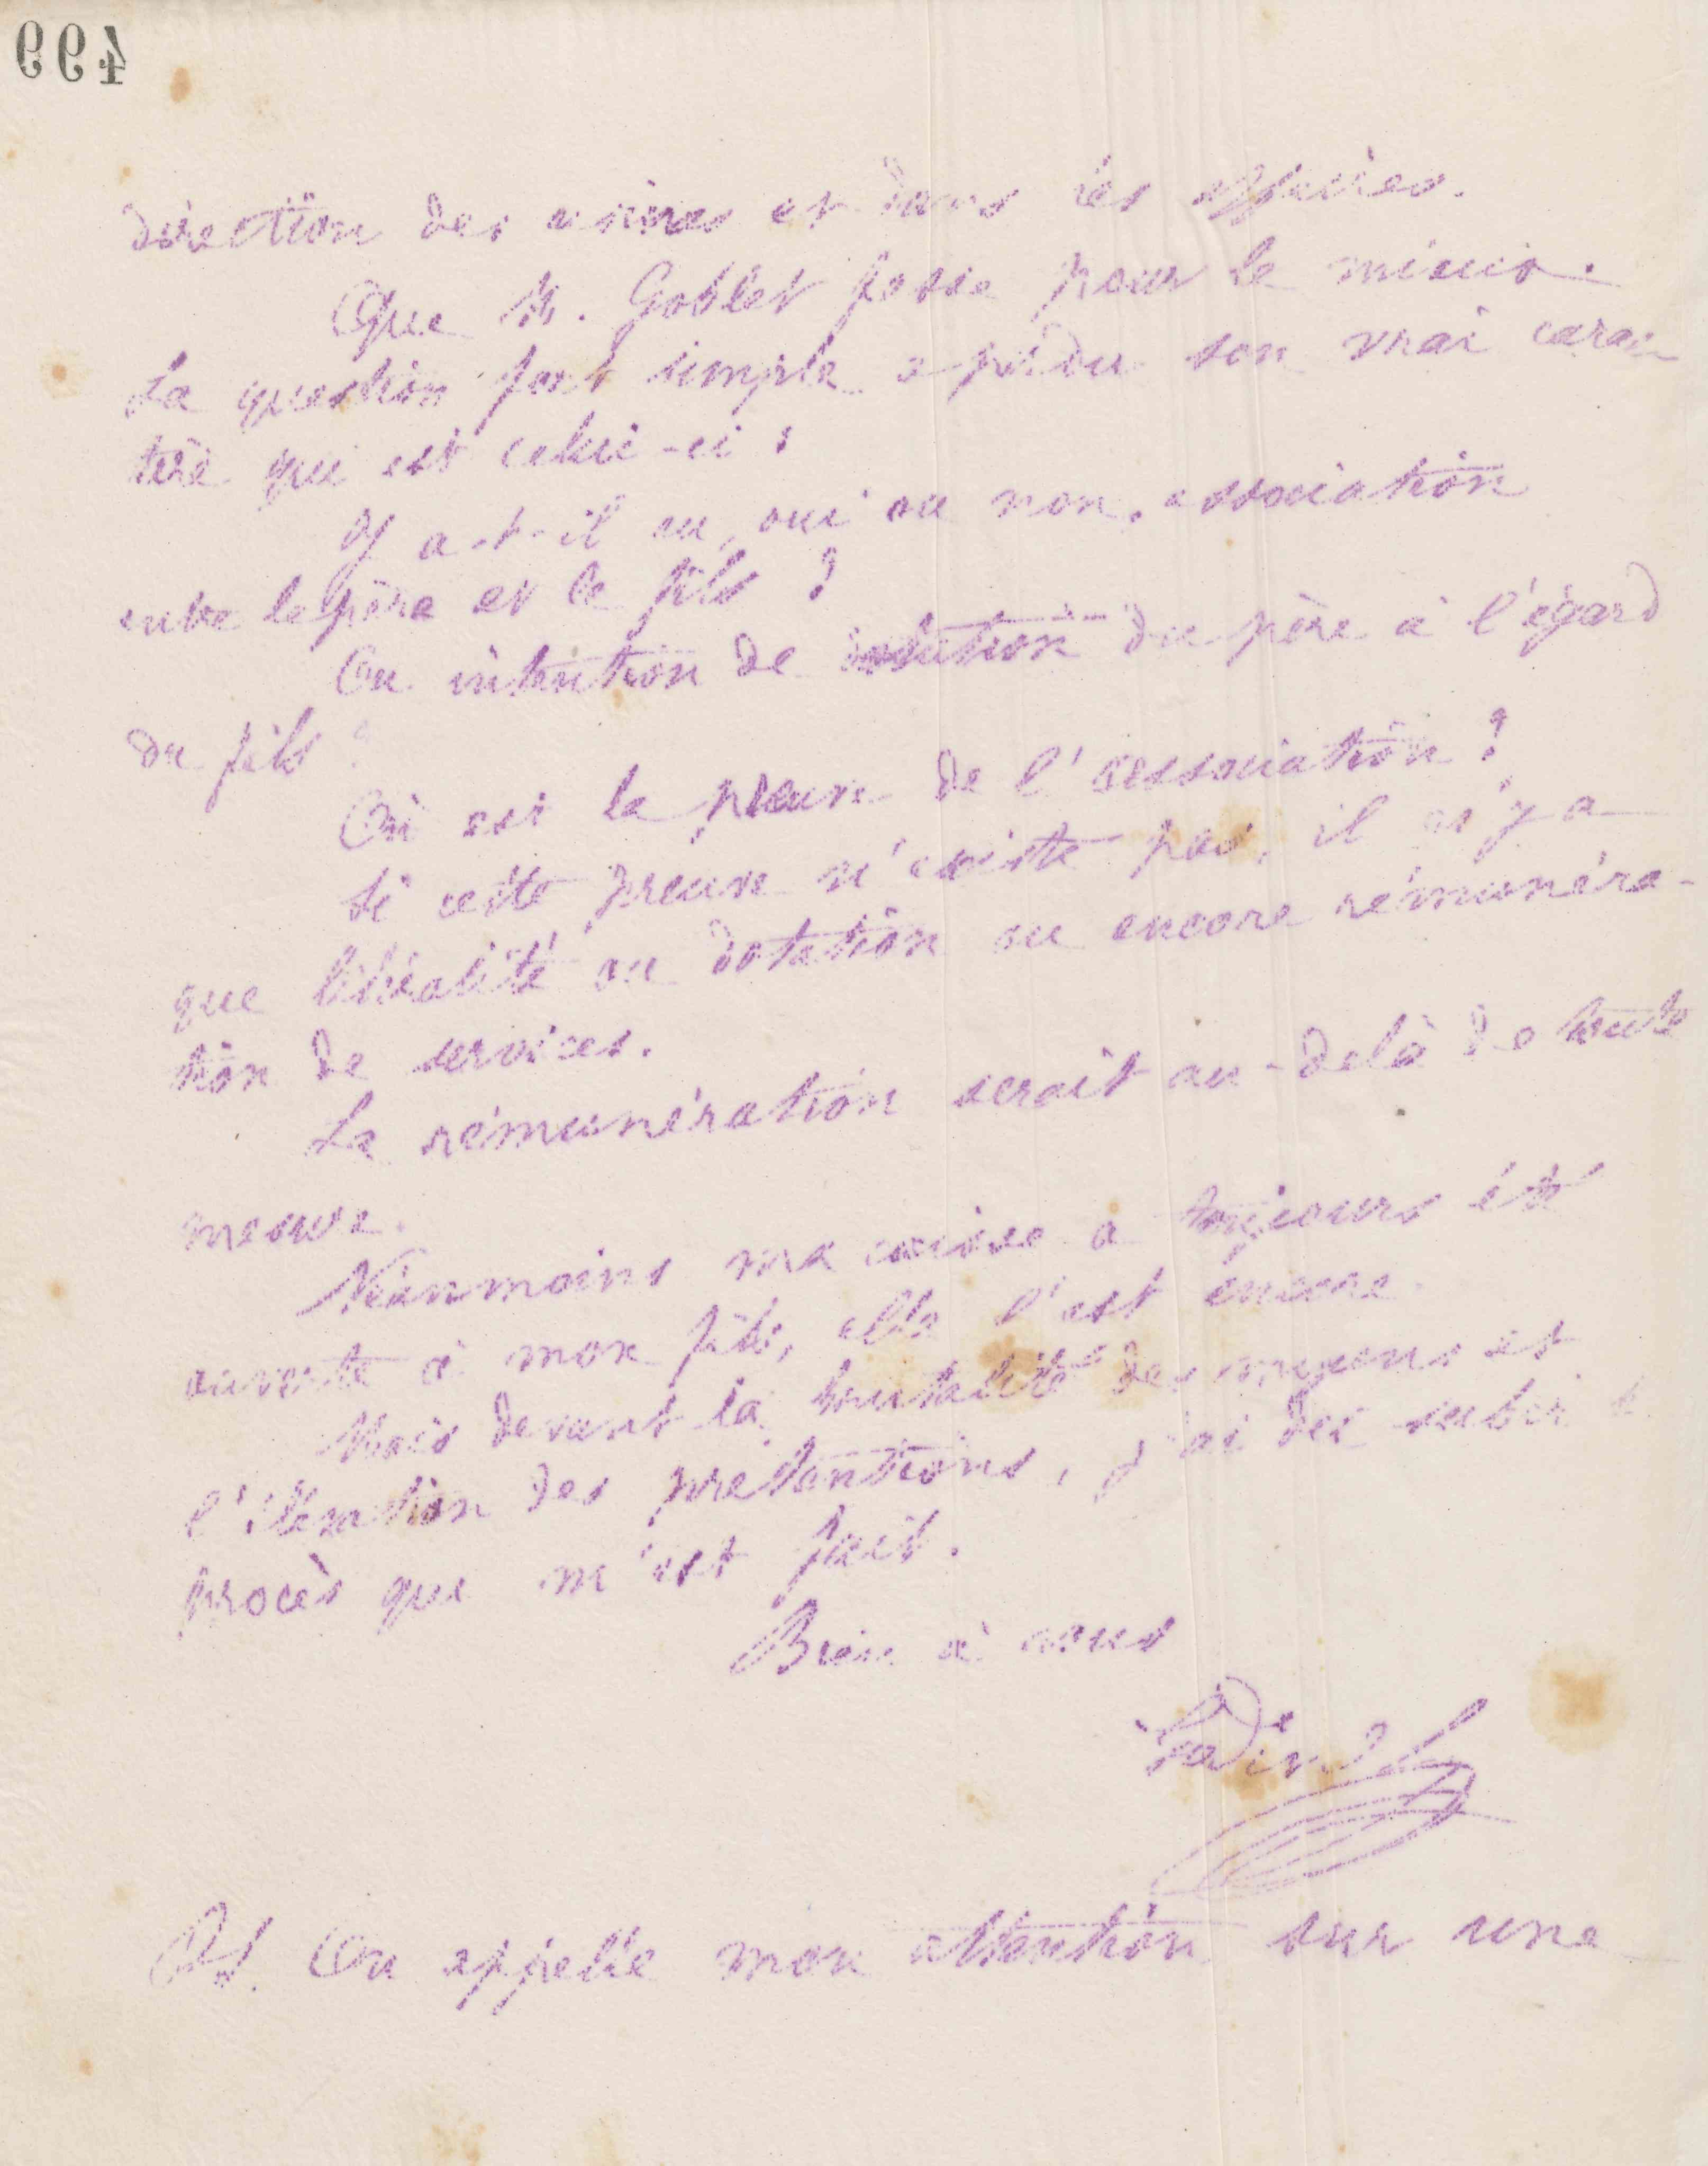 664
direction des usines et dans les affaires.
Que M. Goblet fasse pour le mieux.
La question fort simple a perdu son vrai carac
tère qui est celui-ci :
Y a-t-il eu, oui ou non, association
entre le père et le fils ?
Ou intention de dotation du père à l'égard
du fils ?
Où est la preuve de l'association ?
Si cette preuve n'existe pas, il n'y a
que libéralité ou dotation ou encore rémunéra-
tion de services.
La rémunération serait au-delà de toute
mesure.
Néanmoins ma caisse a toujours été
ouverte à mon fils, elle l'est encore.
Mais devant la brutalité des moyens et
l'élévation des prétentions, j'ai dû subir le
procès qui m'est fait.
Bien à vous
Godin
PS. On appelle mon attention sur une